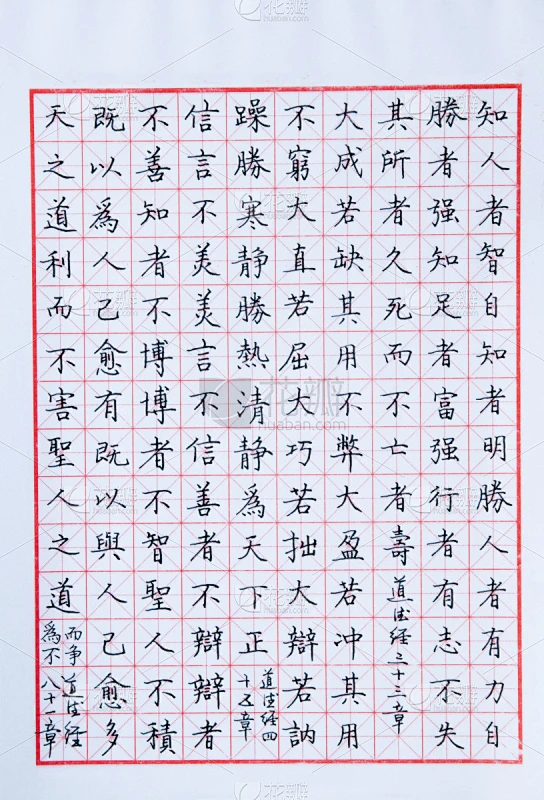 知人者智自知者明勝人者有力自
勝者强知足者富强行者有志不失
其所者久死而不亡者壽道德經三十三章
大成若缺其用不弊大盈若冲其用
不窮大直若屈大巧若拙大辯若訥
躁勝寒静勝熱清静爲天下正道德經四十五章
信言不美美言不信善者不辯辯者
不善知者不博博者不智聖人不積
既以爲人己愈有既以與人己愈多
天之道利而不害聖人之道爲而不争道德經八十一章
花瓣
huaban.com